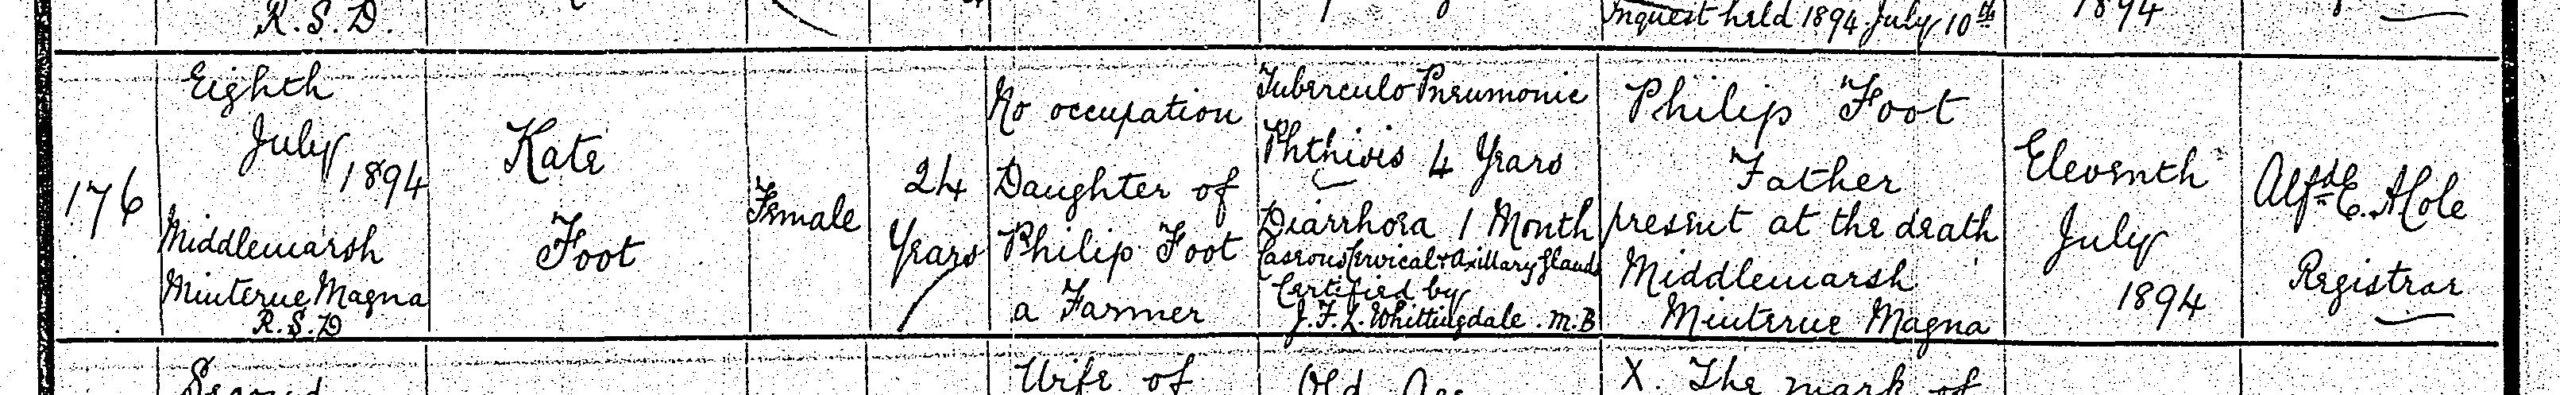 R.S.D.
Inquest held 1894 July 10th
1894
176
Eighth
July
1894
Middlemarsh
Minterne Magna
R.S.D
Kate
Foot
Female
24
Years
No occupation
Daughter of
Philip Foot
a Farmer
Tuberculo Pneumonic
Phthisis 4 Years
Diarrhoea 1 Month
Caseous Cervical & Axillary Glands
Certified by
J.F.L. Whittingdale. M.B
Philip Foot
Father
present at the death
Middlemarsh
Minterne Magna
Eleventh
July
1894
Alfd E. Hole
Registrar
Second
Wife of
Old Age
X. The mark of